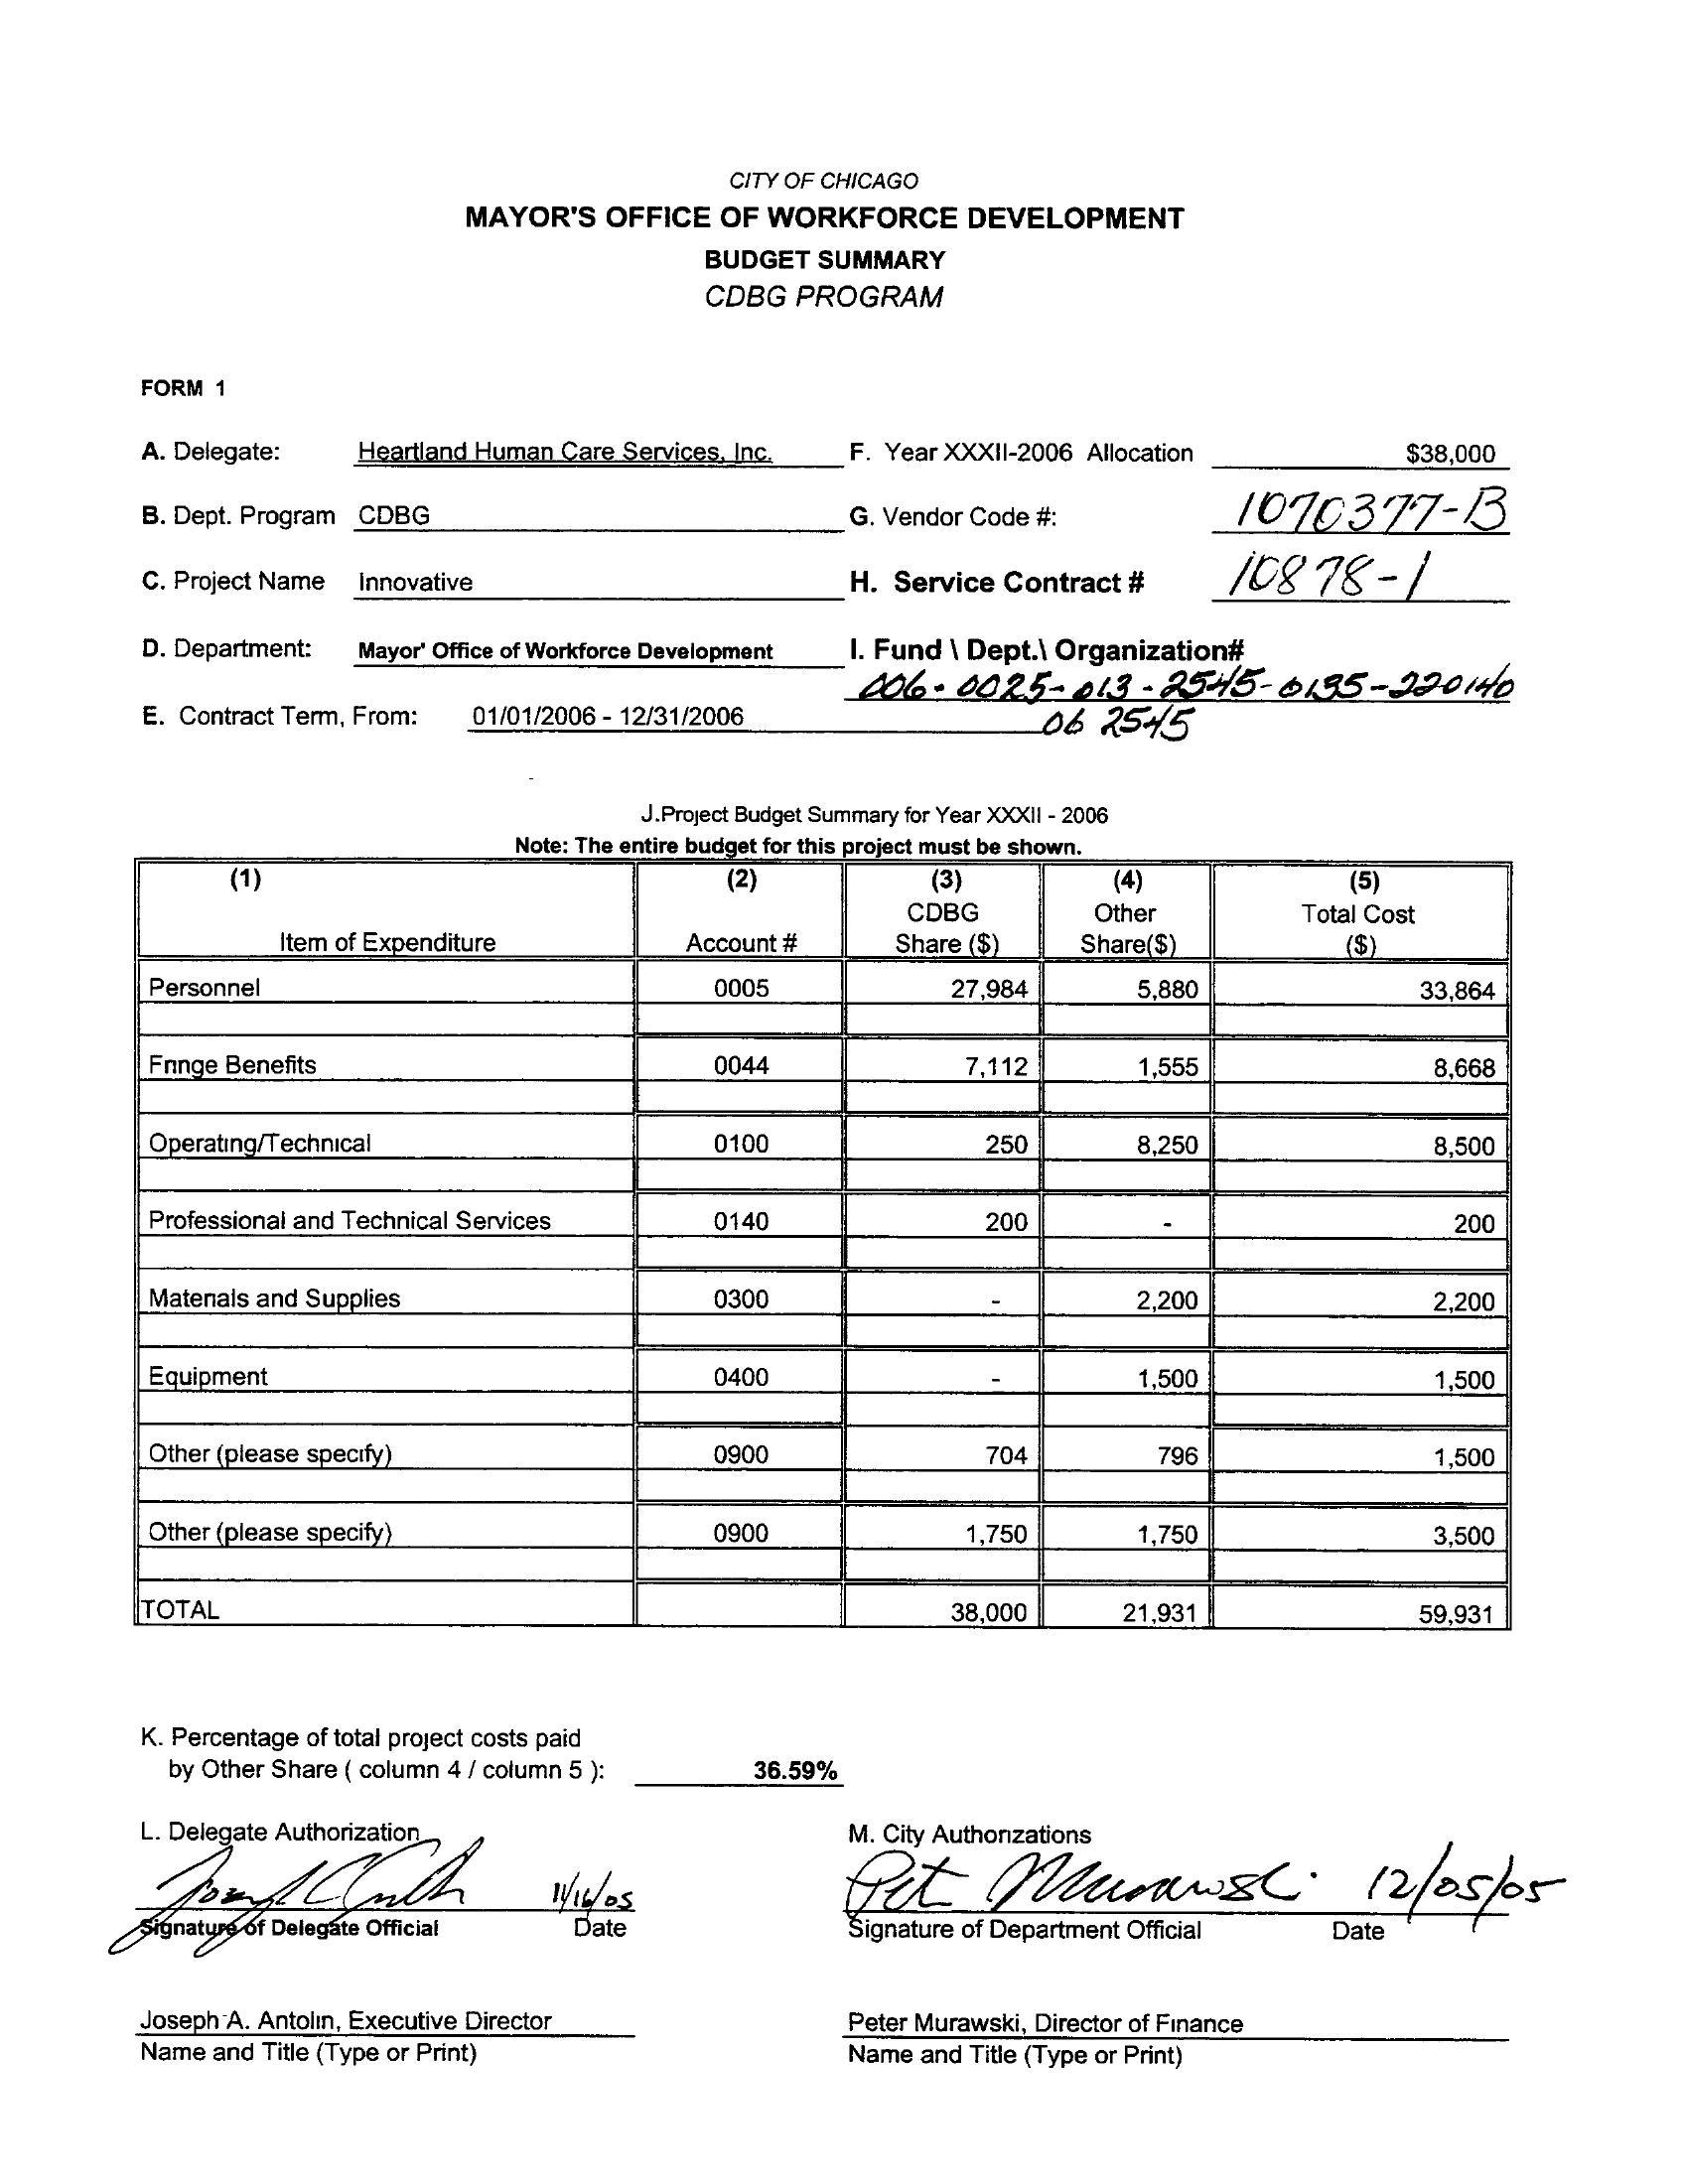 CITY OF CHICAGO
MAYOR'S OFFICE OF WORKFORCE DEVELOPMENT
BUDGET SUMMARY
CDBG PROGRAM
FORM 1
A. Delegate: Heartland Human Care Services, Inc. F. Year XXXII-2006 Allocation $38,000
B. Dept. Program CDBG G. Vendor Code #: 1070377-B
C. Project Name Innovative H. Service Contract # 10878-1
D. Department: Mayor' Office of Workforce Development I. Fund \ Dept.\ Organization#
006-0025-013-2545-0135-220140
E. Contract Term, From: 01/01/2006 - 12/31/2006 06 2545
J.Project Budget Summary for Year XXXII - 2006
Note: The entire budget for this project must be shown.
(1) (2) (3) (4) (5)
CDBG Other Total Cost
Item of Expenditure Account # Share ($) Share($) ($)
Personnel 0005 27,984 5,880 33,864
Fringe Benefits 0044 7,112 1,555 8,668
Operating/Technical 0100 250 8,250 8,500
Professional and Technical Services 0140 200 - 200
Materials and Supplies 0300 - 2,200 2,200
Equipment 0400 - 1,500 1,500
Other (please specify) 0900 704 796 1,500
Other (please specify) 0900 1,750 1,750 3,500
TOTAL 38,000 21,931 59,931
K. Percentage of total project costs paid
by Other Share ( column 4 / column 5 ): 36.59%
L. Delegate Authorization M. City Authorizations
11/16/05 Pet Murawski 12/05/05
Signature of Delegate Official Date Signature of Department Official Date
Joseph A. Antolin, Executive Director Peter Murawski, Director of Finance
Name and Title (Type or Print) Name and Title (Type or Print)